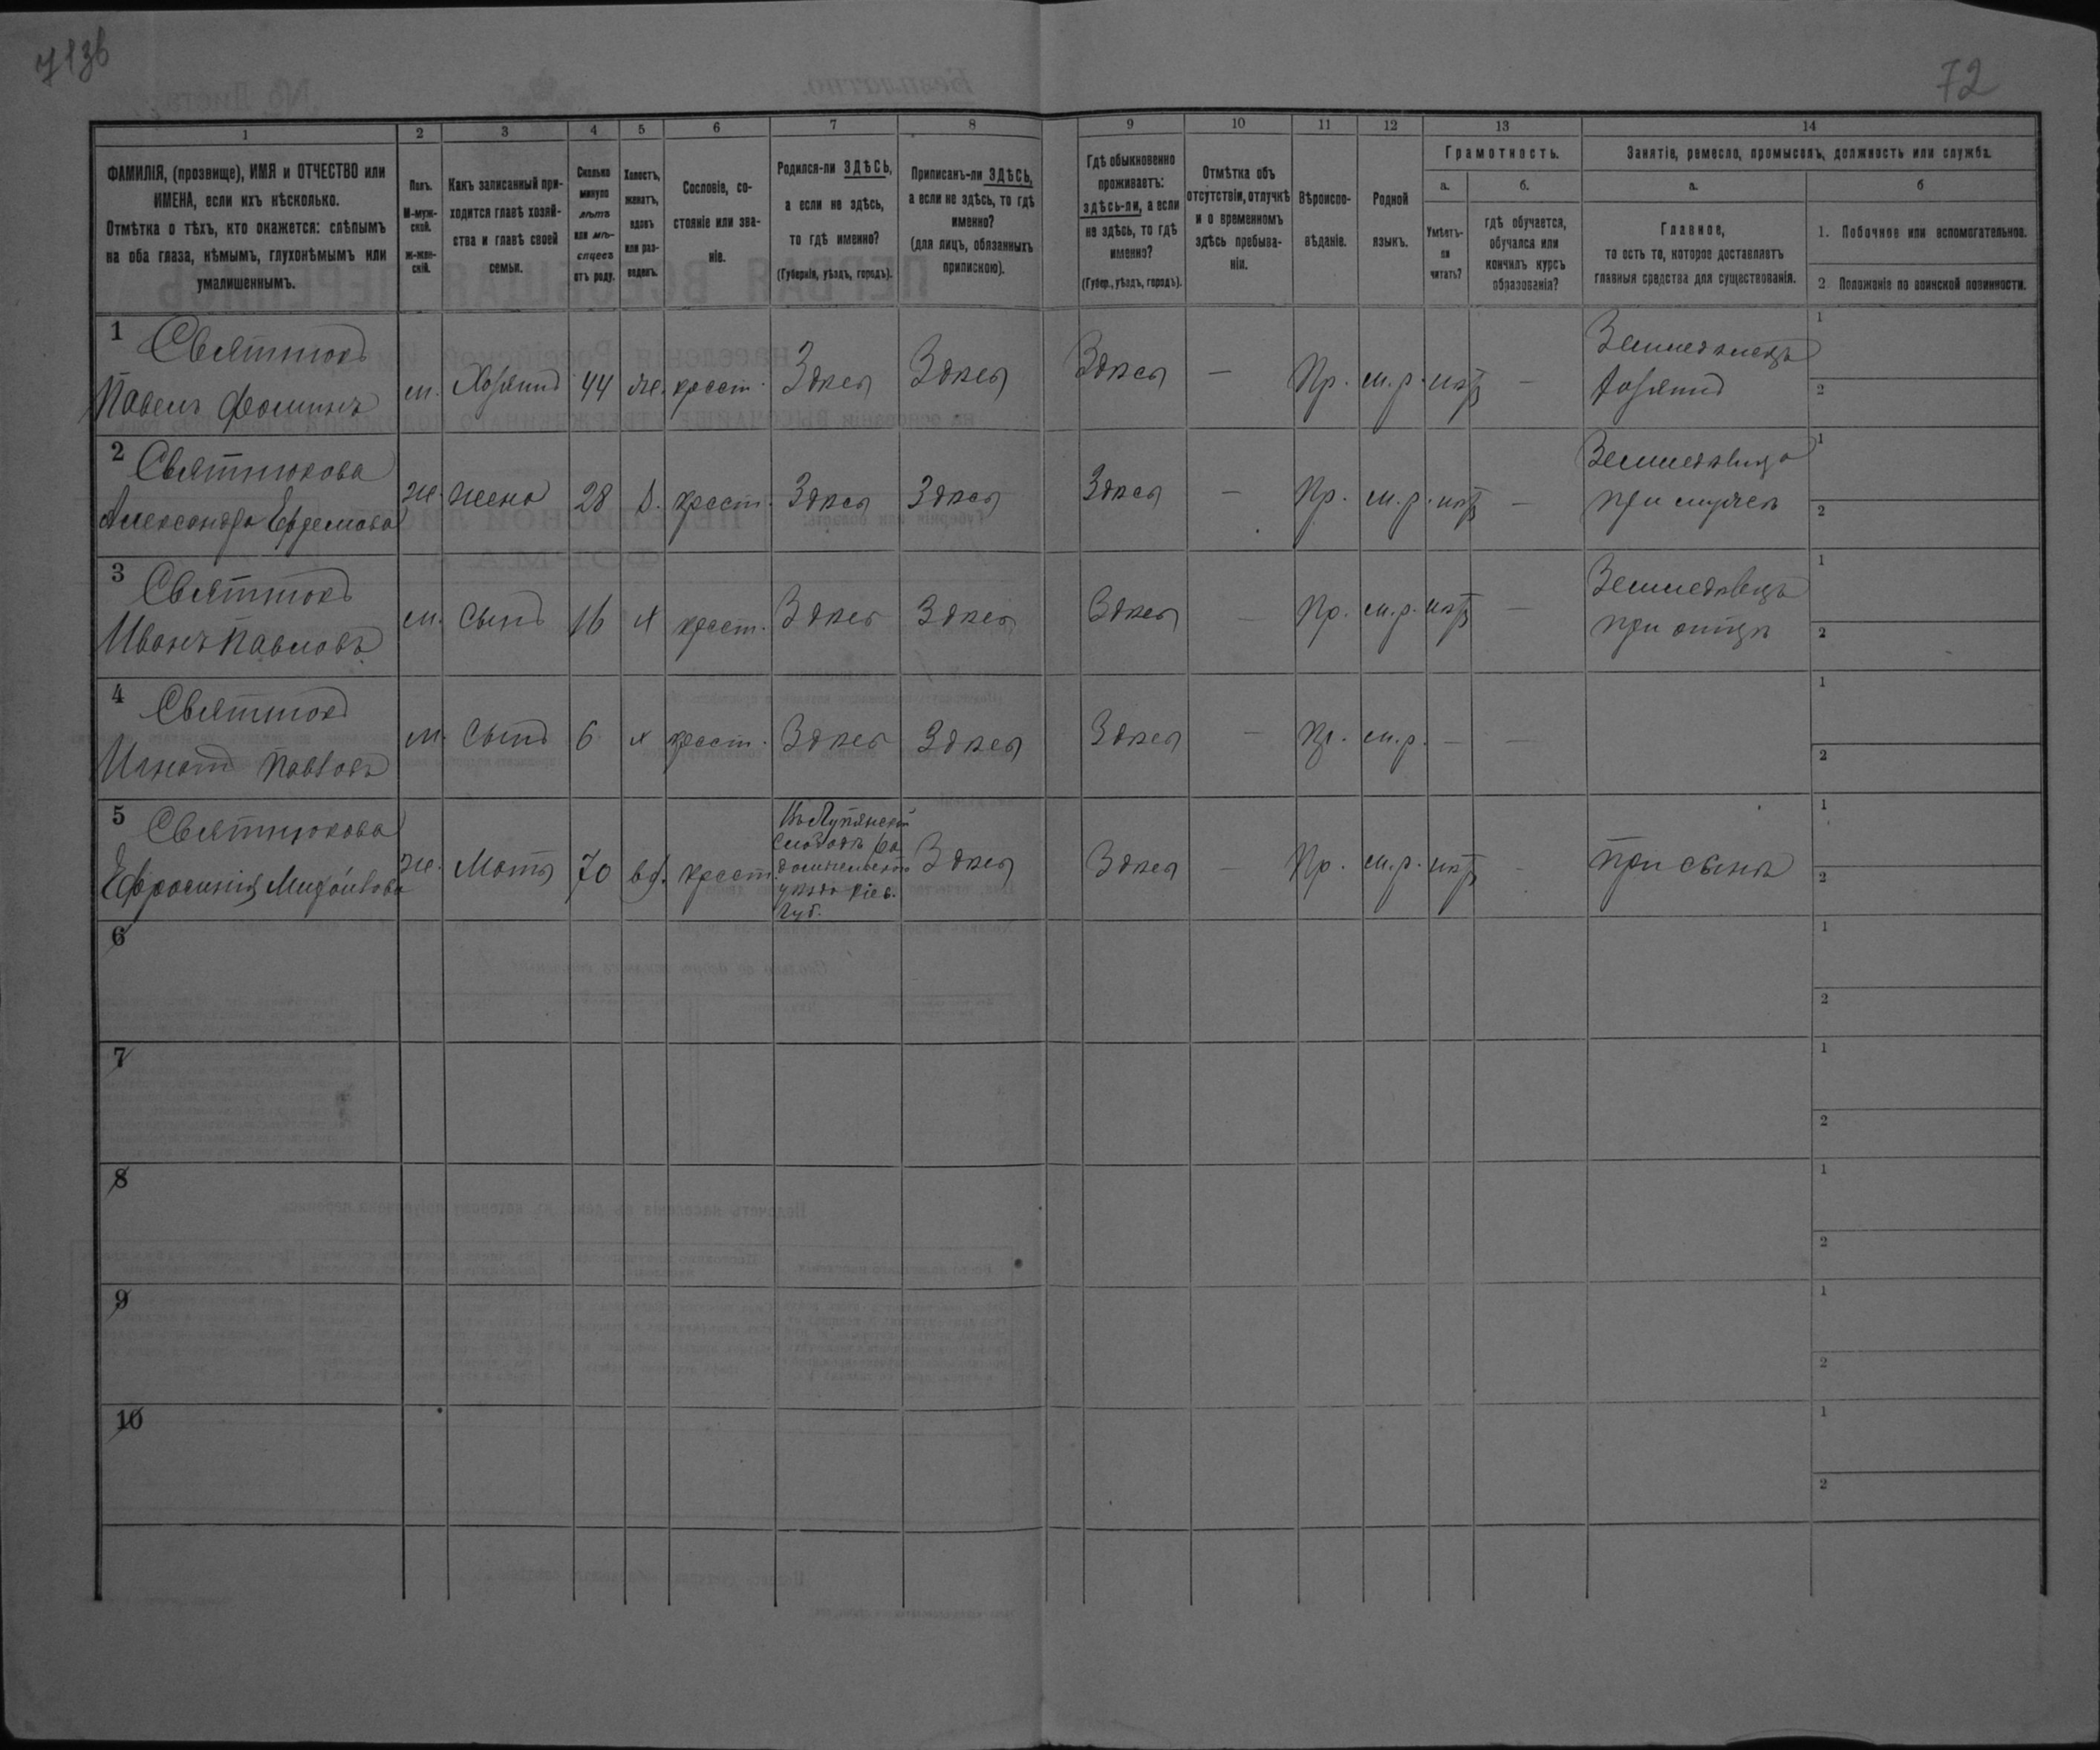 713б
72
1 2 3 4 5 6 7 8 9 10 11 12 13 14
ФАМИЛІЯ, (прозвище), ИМЯ и ОТЧЕСТВО или
ИМЕНА, если ихъ нѣсколько.
Отмѣтка о тѣхъ, кто окажется: слѣпымъ
на оба глаза, нѣмымъ, глухонѣмымъ или
умалишеннымъ.
Полъ.
М-муж-
ской.
Ж-жен-
скій.
Какъ записанный при-
ходится главѣ хозяй-
ства и главѣ своей
семьи.
Сколько
минуло
лѣтъ
или мѣ-
сяцевъ
отъ роду.
Холостъ,
женатъ,
вдовъ
или раз-
веденъ.
Сословіе, со-
стояніе или зва-
ніе.
Родился-ли ЗДѢСЬ,
а если не здѣсь,
то гдѣ именно?
(Губернія, уѣздъ, городъ).
Приписанъ-ли ЗДѢСЬ,
а если не здѣсь, то гдѣ
именно?
(для лицъ, обязанныхъ
припискою).
Гдѣ обыкновенно
проживаетъ:
здѣсь-ли, а если
не здѣсь, то гдѣ
именно?
(Губер., уѣздъ, городъ).
Отмѣтка объ
отсутствіи, отлучкѣ
и о временномъ
здѣсь пребыва-
ніи.
Вѣроиспо-
вѣданіе.
Родной
языкъ.
Грамотность.
а.
Умѣетъ-
ли
читать?
б.
гдѣ обучается,
обучался или
кончилъ курсъ
образованія?
Занятіе, ремесло, промыселъ, должность или служба.
а.
Главное,
то есть то, которое доставляетъ
главныя средства для существованія.
б
1. Побочное или вспомогательное.
2. Положеніе по воинской повинности.
1 Святнюкъ
Павелъ Ѳоминъ м. Хозяинъ 44 же. крест. Здѣсь Здѣсь Здѣсь — Пр. м.р. нѣтъ —
Земледѣлецъ
хозяинъ
1
2
2 Святнюкова
Александра Ефремова ж. жена 28 з. крест. Здѣсь Здѣсь Здѣсь — Пр. м.р. нѣтъ —
при мужѣ
1
2
3 Святнюкъ
Иванъ Павловъ м. Сынъ 16 х крест. Здѣсь Здѣсь Здѣсь — Пр. м.р. нѣтъ —
Земледѣлецъ
при отцѣ
1
2
4 Святнюкъ
Игнатъ Павловъ м. Сынъ 6 х крест. Здѣсь Здѣсь Здѣсь — Пр. м.р. — —
1
2
5 Святнюкова
Ефросинія Михайлова ж. Мать 70 вд. крест. Здѣсь Здѣсь — Пр. м.р. нѣтъ - при сынѣ
Слободѣ Ра
домысльскаго
уѣзда Кіев.
Губ.
1
2
6
1
2
7
1
2
8
1
2
9
1
2
10
1
2